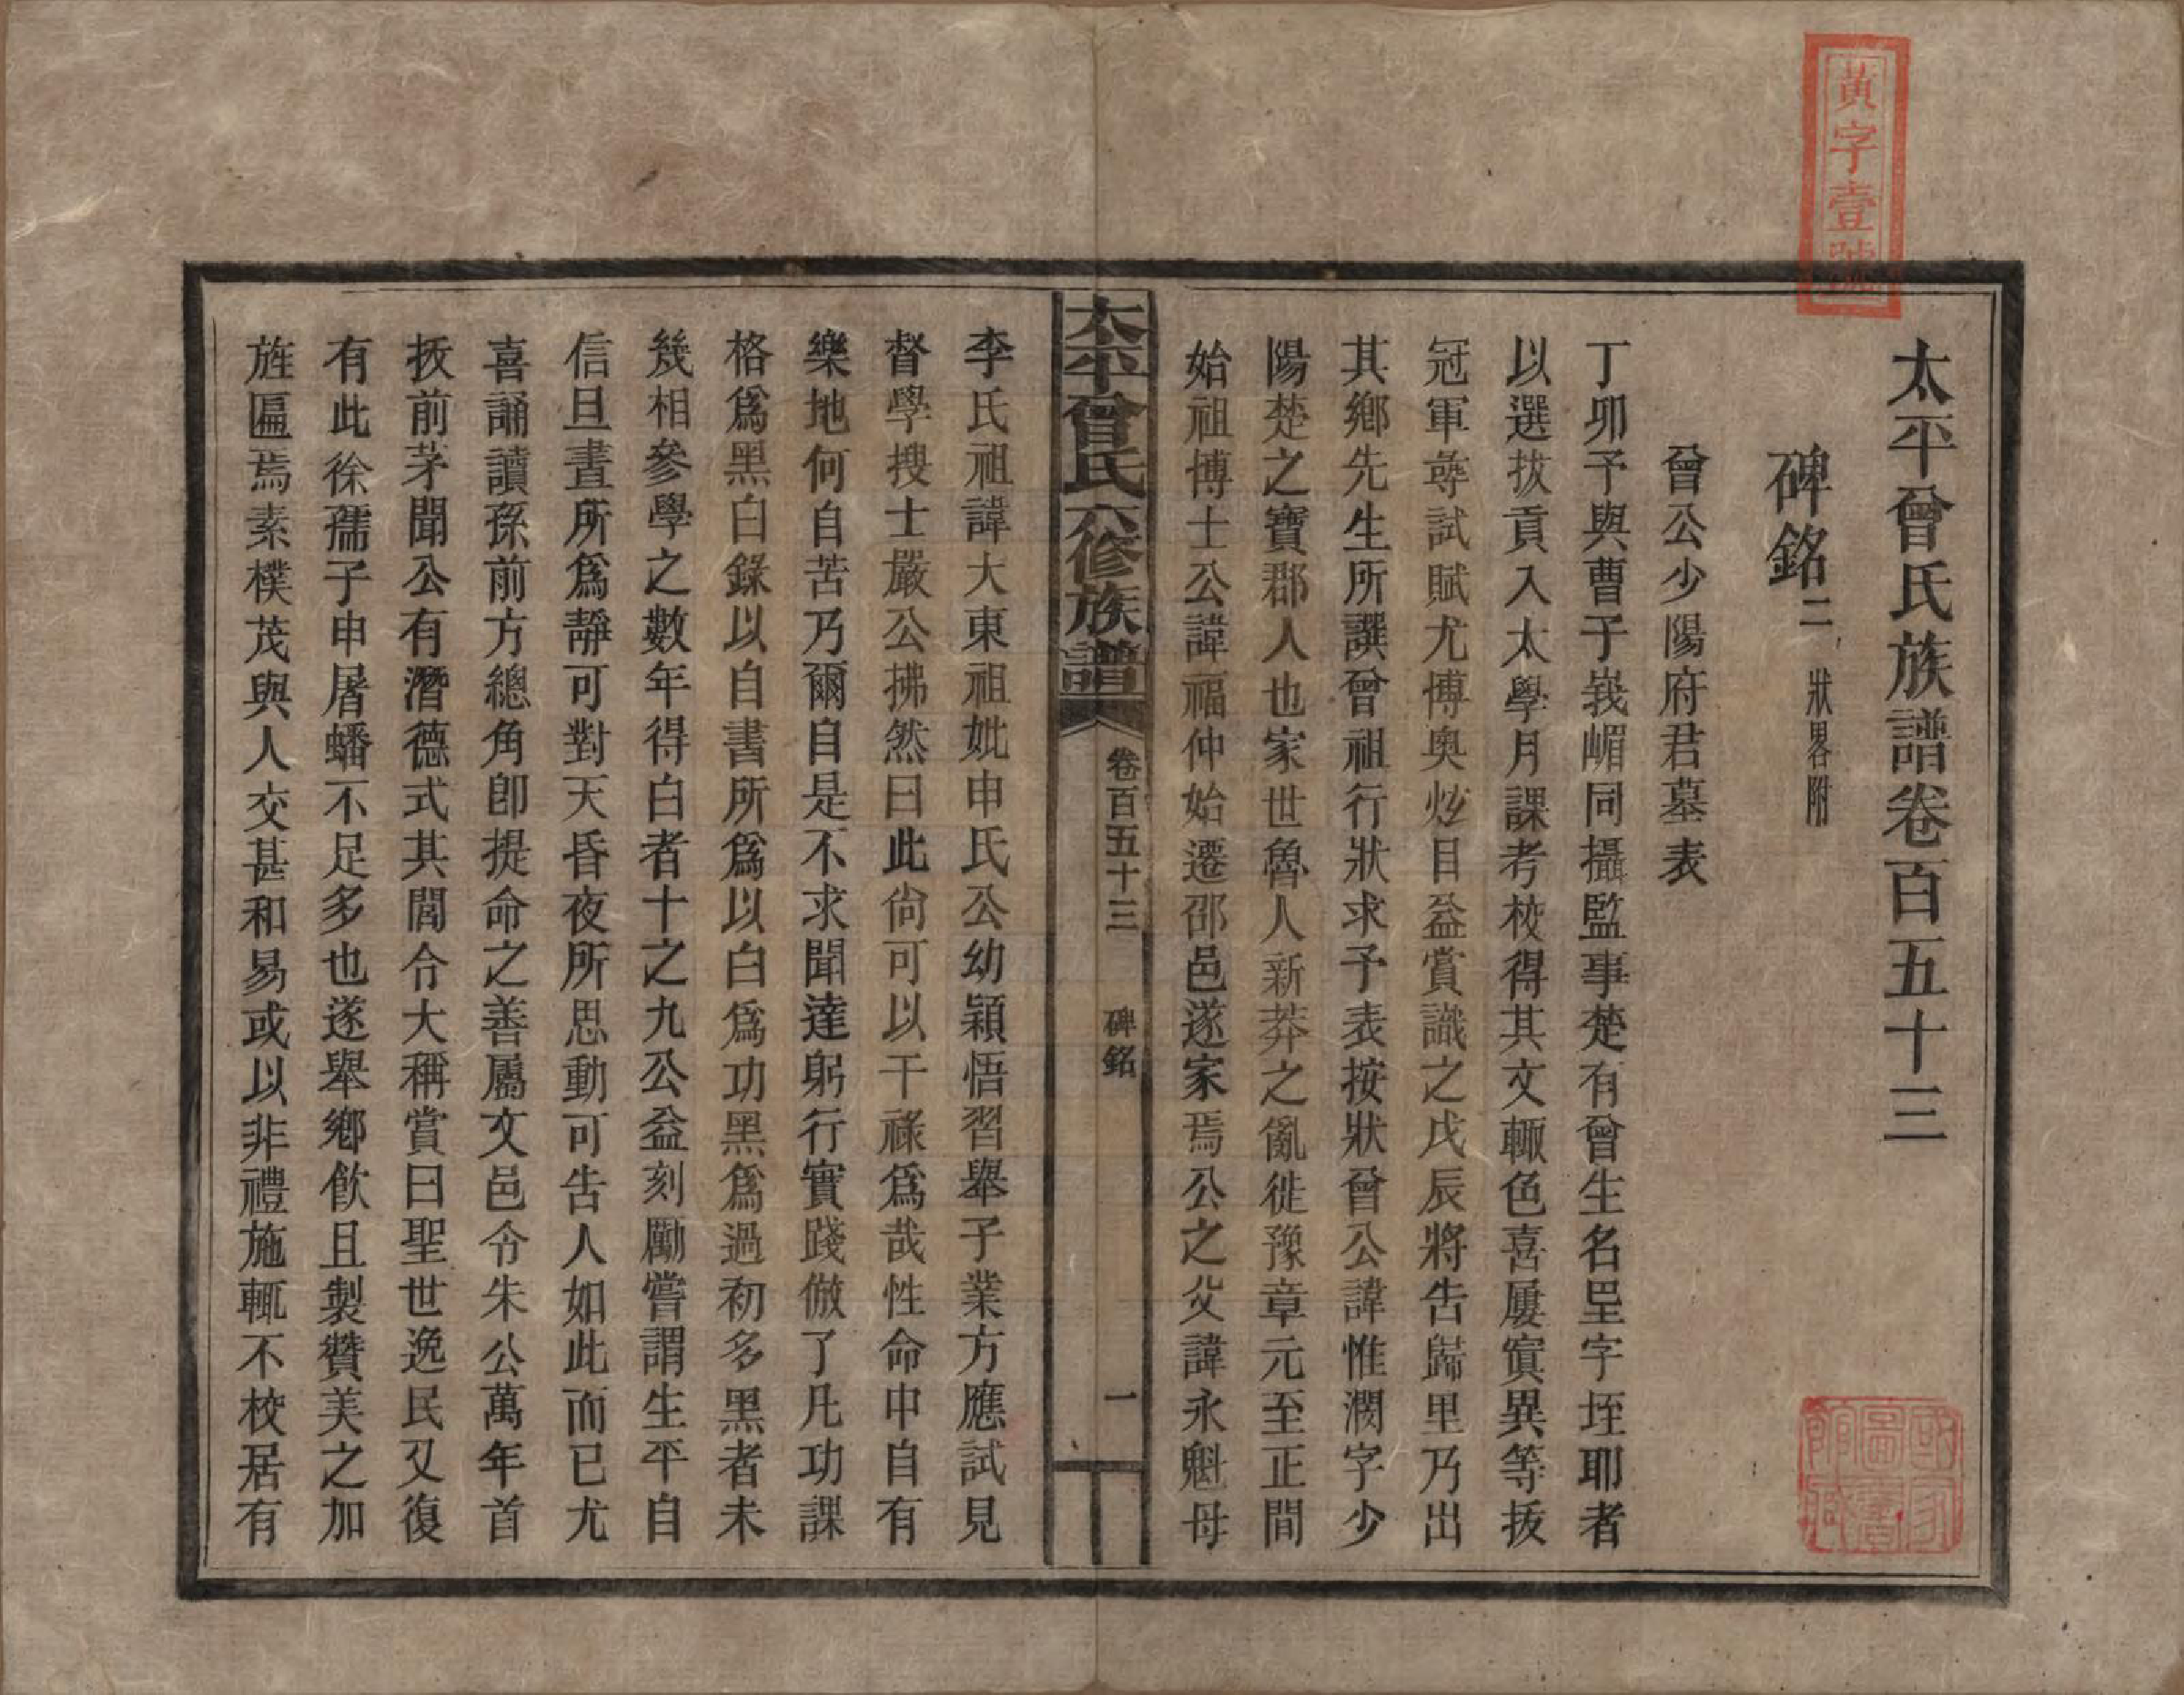 黃字壹號
太平曾氏族譜卷百五十三
碑銘二 狀畧附
曾公少陽府君墓表
丁卯予與曹于峩嵋同攝監事楚有曾生名垾字垤耶者
以選拔貢入太學月課考校得其文輙色喜屢寘異等拔
冠軍蕁試賦尤博奧炫目益賞識之戊辰將告歸里乃出
其鄉先生所譔曾祖行狀求予表按狀曾公諱惟潤字少
陽楚之寶郡人也家世魯人新莽之亂徙豫章元至正間
始祖博士公諱福仲始遷邵邑遂家焉公之父諱永魁母
太平曾氏六修族譜 卷百五十三 碑銘 一
李氏祖諱大東祖妣申氏公幼穎悟習舉子業方應試見
督學搜士嚴公拂然曰此尙可以干祿爲哉性命中自有
樂地何自苦乃爾自是不求聞達躬行實踐倣了凡功課
格爲黑白錄以自書所爲以白爲功黑爲過初多黑者未
幾相參學之數年得白者十之九公益刻勵嘗謂生平自
信旦晝所爲靜可對天昏夜所思動可告人如此而已尤
喜誦讀孫前方總角卽提命之善屬文邑令朱公萬年首
拔前茅聞公有潛德式其閭令大稱賞曰聖世逸民又復
有此徐孺子申屠蟠不足多也遂舉鄉飮且製贊美之加
旌匾焉素樸茂與人交甚和易或以非禮施輒不校居有
國家圖書館藏